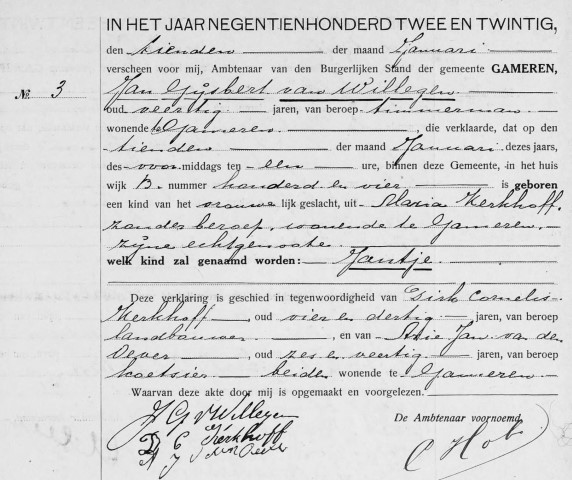 IN HET JAAR NEGENTIENHONDERD TWEE EN TWINTIG,
den tienden der maand Januari
verscheen voor mij, Ambtenaar van den Burgerlijken Stand der gemeente GAMEREN,
No. 3 Jan Gijsbert van Willegen
oud veertig jaren, van beroep timmerman
wonende te Gameren, die verklaarde, dat op den
tienden der maand Januari dezes jaars,
des voormiddags ten een ure, binnen deze Gemeente, in het huis
wijk B. nummer honderd en vier is geboren
een kind van het vrouwelijk geslacht, uit Maria Kerkhoff,
zonder beroep, wonende te Gameren,
zijne echtgenoote.
welk kind zal genaamd worden: Jantje
Deze verklaring is geschied in tegenwoordigheid van Dirk Cornelis
Kerkhoff, oud vier en dertig jaren, van beroep
landbouwer, en van Arie Jan van den
Oever, oud zes en veertig jaren, van beroep
koetsier beiden wonende te Gameren
Waarvan deze akte door mij is opgemaakt en voorgelezen.
J G v Willegen
D C Kerkhoff
A J v den Oever
De Ambtenaar voornoemd,